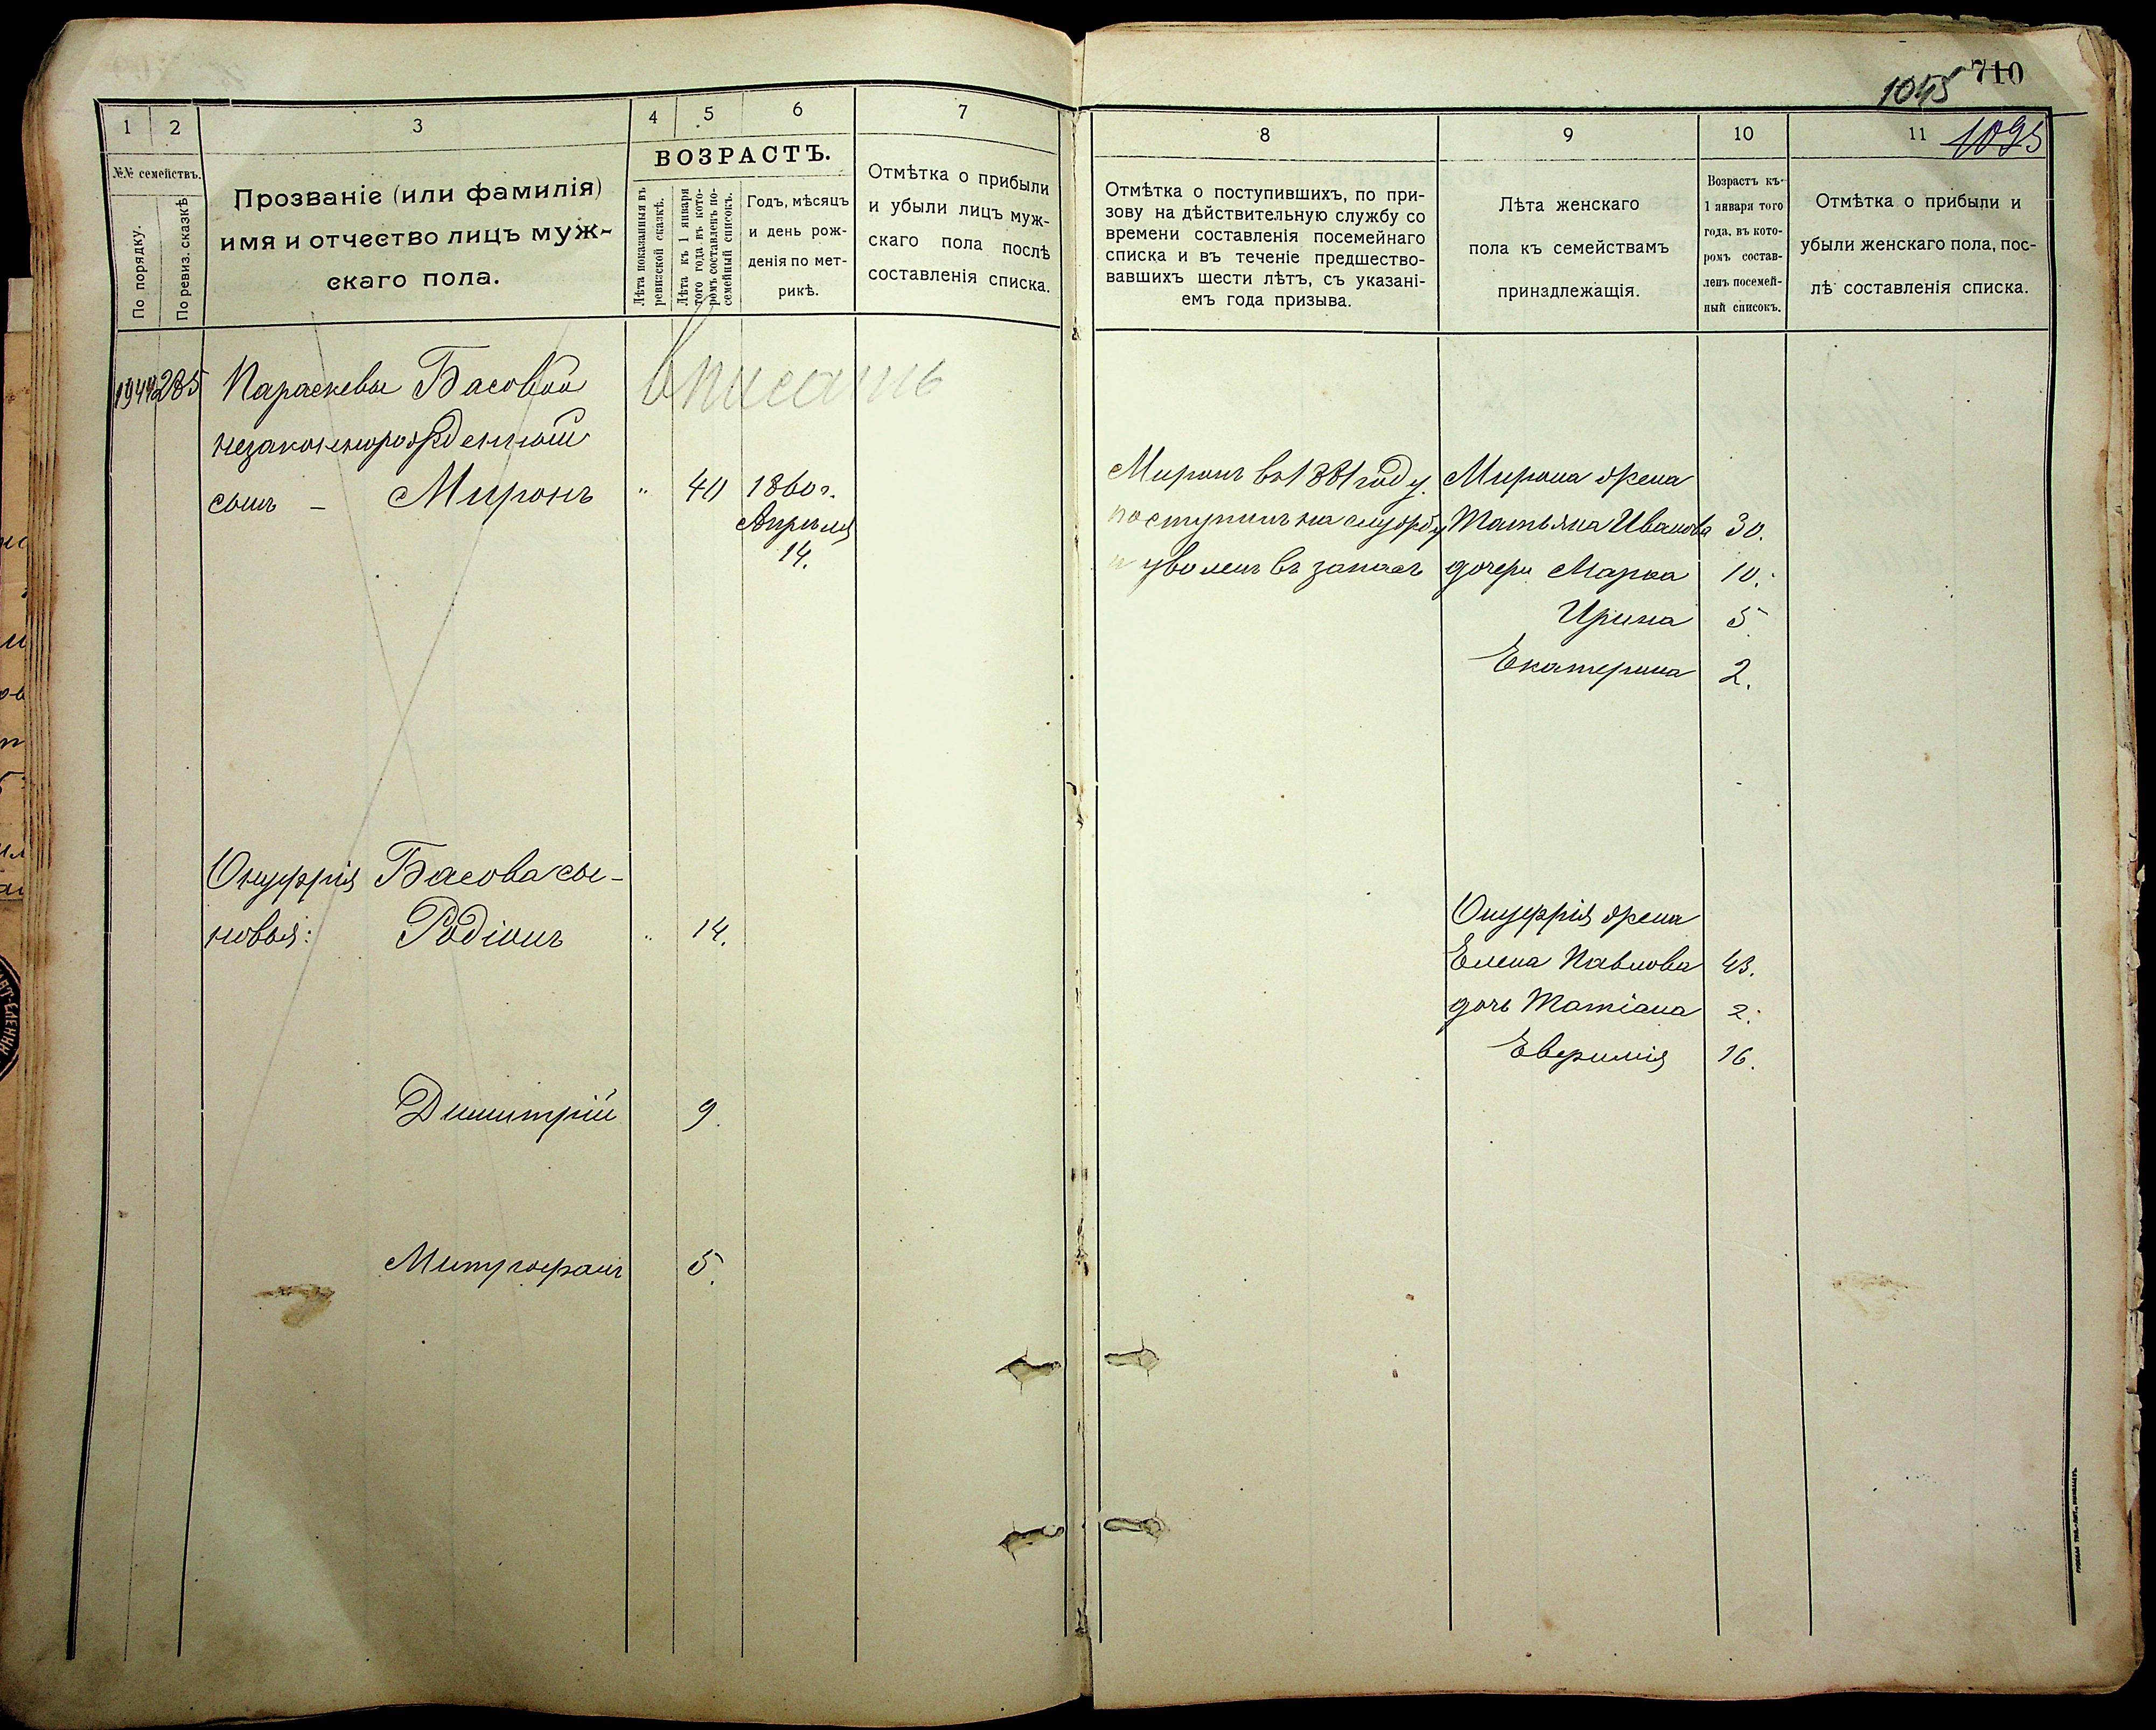 710
1045
1095
1
2
3
4
5
6
7
№№ семействъ.
По порядку.
По ревиз. сказкѣ
Прозваніе (или фамилія)
имя и отчество лицъ муж-
скаго пола.
ВОЗРАСТЪ.
Лѣта показанныя въ
ревизской сказкѣ.
Лѣта къ 1 января
того года, въ кото-
ромъ составленъ по-
семейный списокъ.
Годъ, мѣсяцъ
и день рож-
денія по мет-
рикѣ.
Отмѣтка о прибыли
и убыли лицъ муж-
скаго пола послѣ
составленія списка.
8
9
10
11
Отмѣтка о поступившихъ, по при-
зову на дѣйствительную службу со
времени составленія посемейнаго
списка и въ теченіе предшество-
вавшихъ шести лѣтъ, съ указані-
емъ года призыва.
Лѣта женскаго
пола къ семействамъ
принадлежащія.
Возрастъ къ
1 января того
года, въ кото-
ромъ состав-
ленъ посемей-
ный списокъ.
Отмѣтка о прибыли и
убыли женскаго пола, пос-
лѣ составленія списка.
1944 285 Параскевы Басовой
вписать
незаконнорожденный
сынъ – Миронъ " 40 1860 г.
Апрѣля
14.
Миронъ въ 1881 году
поступилъ на службу
и уволенъ въ запасъ
Мирона жена
Татьяна Иванова 30.
дочери Марѳа 10.
Ирина 5
Екатерина 2.
Онуфрія Басова сы-
новья: Родіонъ " 14.
Димитрій 9.
Митрофанъ 5.
Онуфрія жена
Елена Павлова 43.
дочь Татіана 2.
Евфимія 16.